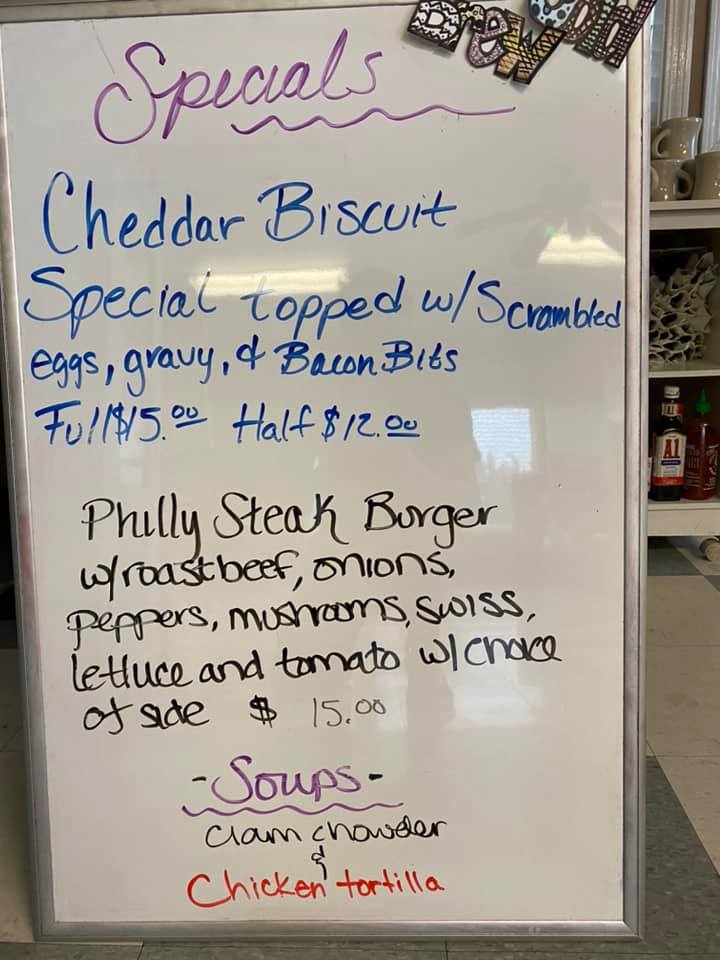 Brew Cold
Specials
Cheddar Biscuit
Special topped w/Scrambled
eggs, gravy, & Bacon Bits
Full $15.00 Half $12.00
Philly Steak Burger
w/roastbeef, onions,
peppers, mushrooms, swiss,
lettuce and tomato w/choice
of side $ 15.00
-Soups-
Clam chowder
&
Chicken tortilla
A.1.